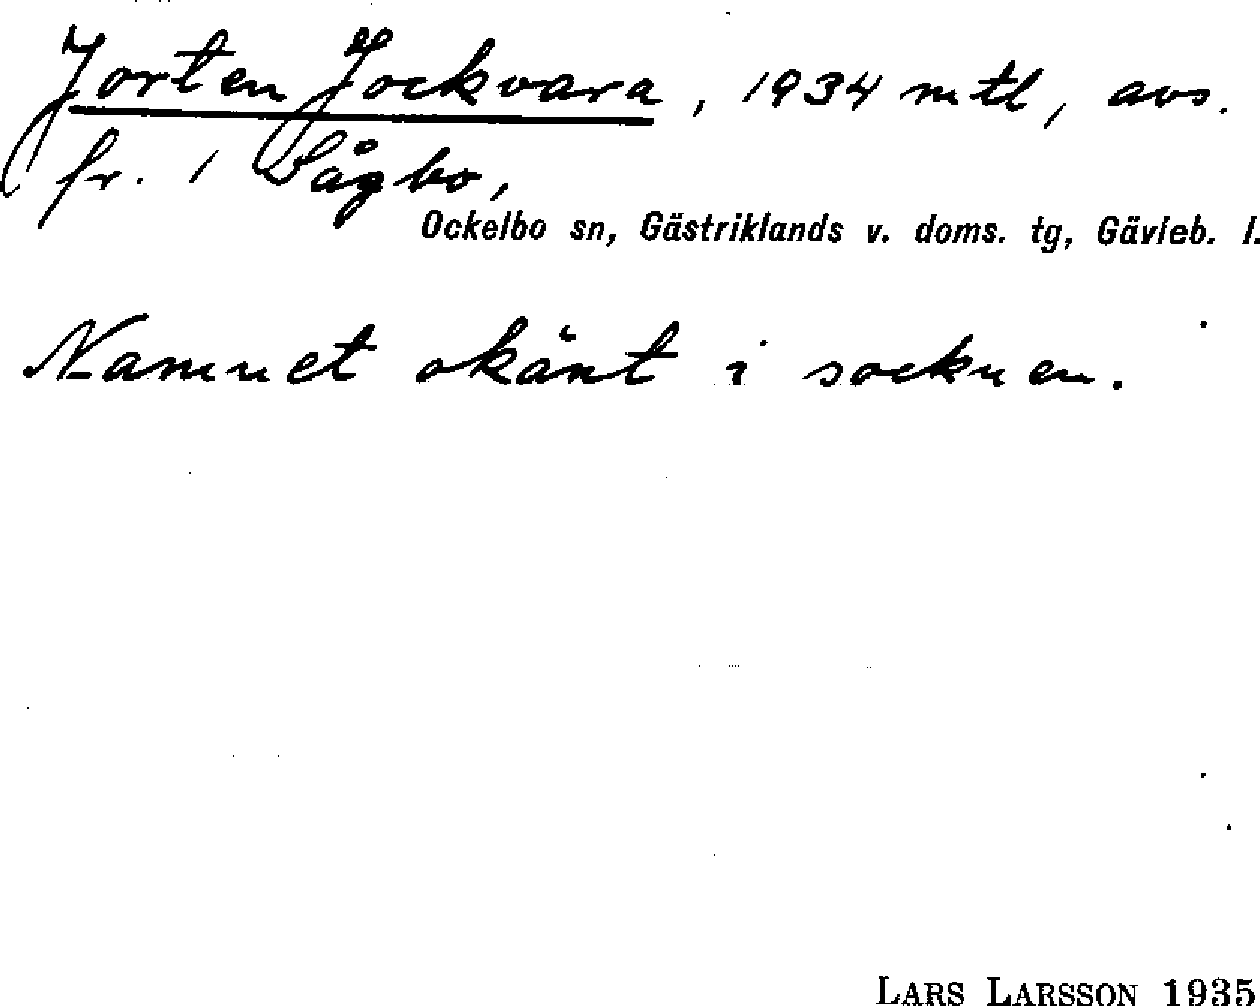 Jorten Jockvara, 1934 mtl, avs.
fr. 1 Sågbo,
Ockelbo sn, Gästriklands v. doms. tg, Gävleb. l.
Namnet okänt i socknen.
LARS LARSSON 1935